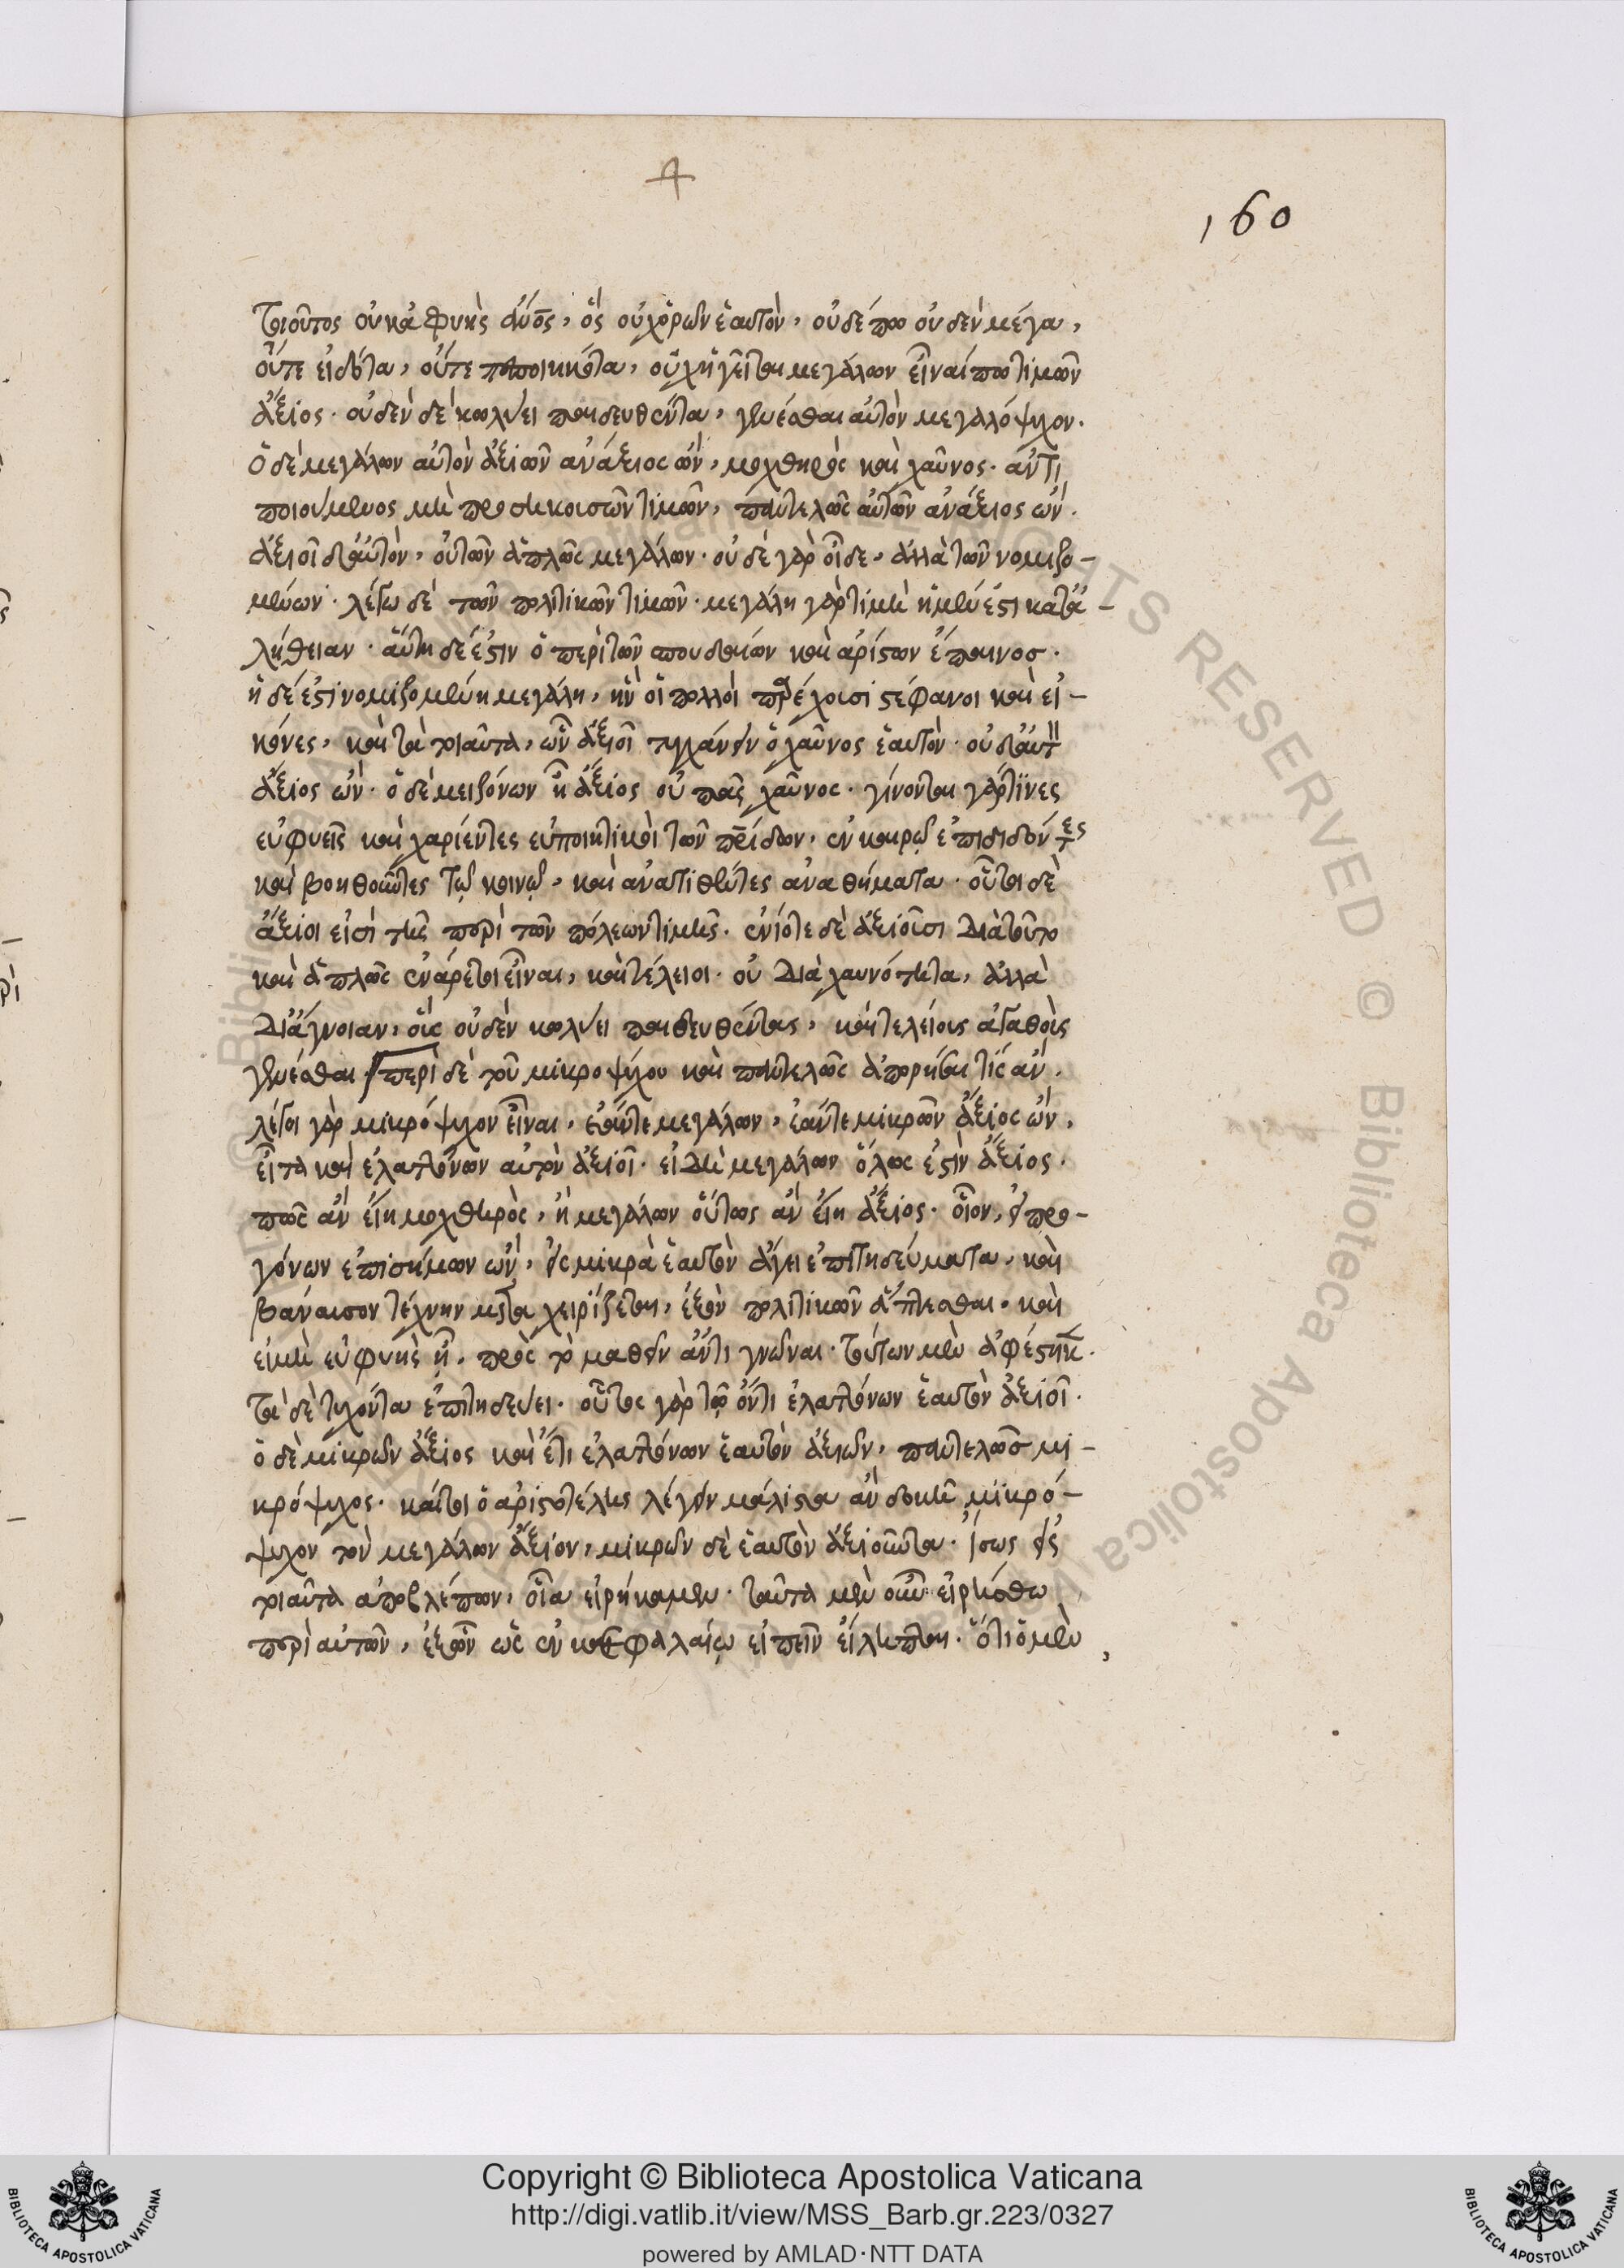 160
τοιοῦτος οὐκ ἀφυὴς ἄνος, ὃς οὐχ ὁρῶν ἑαυτὸν, οὐδέπω οὐδὲν μέγα,
οὔτε εἰδότα, οὔτε πεποιηκότα, οὐχ ἡγεῖται μεγάλων εἶναί πω τιμῶν
ἄξιος. οὐδὲν δὲ κωλύει παιδευθέντα, γενέσθαι αὐτὸν μεγαλόψυχον.
Ὁ δὲ μεγάλων αὐτὸν ἀξιῶν ἀνάξιος ὢν, μοχθηρὸς καὶ χαῦνος. ἀντι
ποιούμενος μὴ προσηκουσῶν τιμῶν, παντελῶς αὐτῶν ἀνάξιος ὤν.
ἀξιοῖ δ' αὐτὸν, οὐ τῶν ἁπλῶς μεγάλων. οὐδὲ γὰρ οἶδε, ἀλλὰ τῶν νομιζο-
μένων. λέγω δὲ τῶν πολιτικῶν τιμῶν. μεγάλη γὰρ τιμὴ ἡ μέν ἐστι κατὰ ἀ-
λήθειαν. αὕτη δέ ἐστιν ὁ περὶ τῶν σπουδαίων καὶ ἀρίστων ἔπαινος.
ἡ δέ ἐστι νομιζομένη μεγάλη, ἣν οἱ πολλοὶ παρέχουσι στέφανοι καὶ εἰ-
κόνες, καὶ τὰ τοιαῦτα, ὧν ἀξιοῖ τυγχάνειν ὁ χαῦνος ἑαυτὸν. οὐδ' αὐτ
ἄξιος ὤν. ὁ δὲ μειζόνων ἢ ἄξιος οὐ πᾶς χαῦνος. γίνονται γάρ τινες
εὐφυεῖς καὶ χαρίεντες εὐποιητικοὶ τῶν, ἐν καιρῷ ἐπιδιδόντες
καὶ βοηθοῦντες τῷ κοινῷ, καὶ ἀνατιθέντες ἀναθήματα. οὗτοι δὲ
ἄξιοι εἰσὶ τῆς παρὰ τῶν πόλεων τιμῆς. ἐνίοτε δὲ ἀξιοῦσι διὰ τοῦτο
καὶ ἁπλῶς ἐνάρετοι εἶναι, καὶ τέλειοι. οὐ διὰ χαυνότητα, ἀλλὰ
δι' ἄγνοιαν, οὓς οὐδὲν κωλύει παιδευθέντας, καὶ τελείους ἀγαθοὺς
γενέσθαι. περὶ δὲ τοῦ μικροψύχου καὶ παντελῶς ἀπορήσαι τὶς ἄν.
λέγοι γὰρ μικρόψυχον εἶναι, ἐάν τε μεγάλων, ἐάν τε μικρῶν ἄξιος ὢν,
εἶτα καὶ ἐλαττόνων αὑτὸν ἀξιοῖ. εἰ δὴ μεγάλων ὅλως ἐστὶν ἄξιος.
πῶς ἂν εἴη μοχθηρὸς, ἢ μεγάλων οὕτως ἂν εἴη ἄξιος. οἷον, εἰ προ-
γόνων ἐπισήμων ὢν, εἰς μικρὰ ἑαυτὸν ἄγει ἐπιτηδεύματα, καὶ
βάναυσον τέχνην μεταχειρίζεται, ἐξὸν πολιτικῶν ἅπτεσθαι. καὶ
εἰ μὴ εὐφυὴς ᾖ, πρὸς τὸ μαθεῖν ἄν τι γνῶναι. τούτων μὲν ἀφέστηκ.
τὰ δὲ τυχόντα ἐπιτηδεύει. οὗτος γὰρ τῷ ὄντι ἐλαττόνων ἑαυτὸν ἀξιοῖ.
ὁ δὲ μικρῶν ἄξιος καὶ ἔτι ἐλαττόνων ἑαυτὸν ἀξιῶν, παντελῶς μι-
κρόψυχος. καίτοι ὁ ἀριστοτέλης λέγειν μάλιστα ἂν δοκῇ μικρό-
ψυχον τὸν μεγάλων ἄξιον, μικρῶν δὲ ἑαυτὸν ἀξιοῦντα. ἴσως εἰς
τοιαῦτα ἀποβλέπων, οἷα εἰρήκαμεν. ταῦτα μὲν οὖν εἰρήσθω
περὶ αὐτῶν, ἐξ ὧν ὡς ἐν κεφαλαίῳ εἰπεῖν εἴληπται. ὅτι ὁ μὲν
Copyright © Biblioteca Apostolica Vaticana
http://digi.vatlib.it/view/MSS_Barb.gr.223/0327
powered by AMLAD·NTT DATA